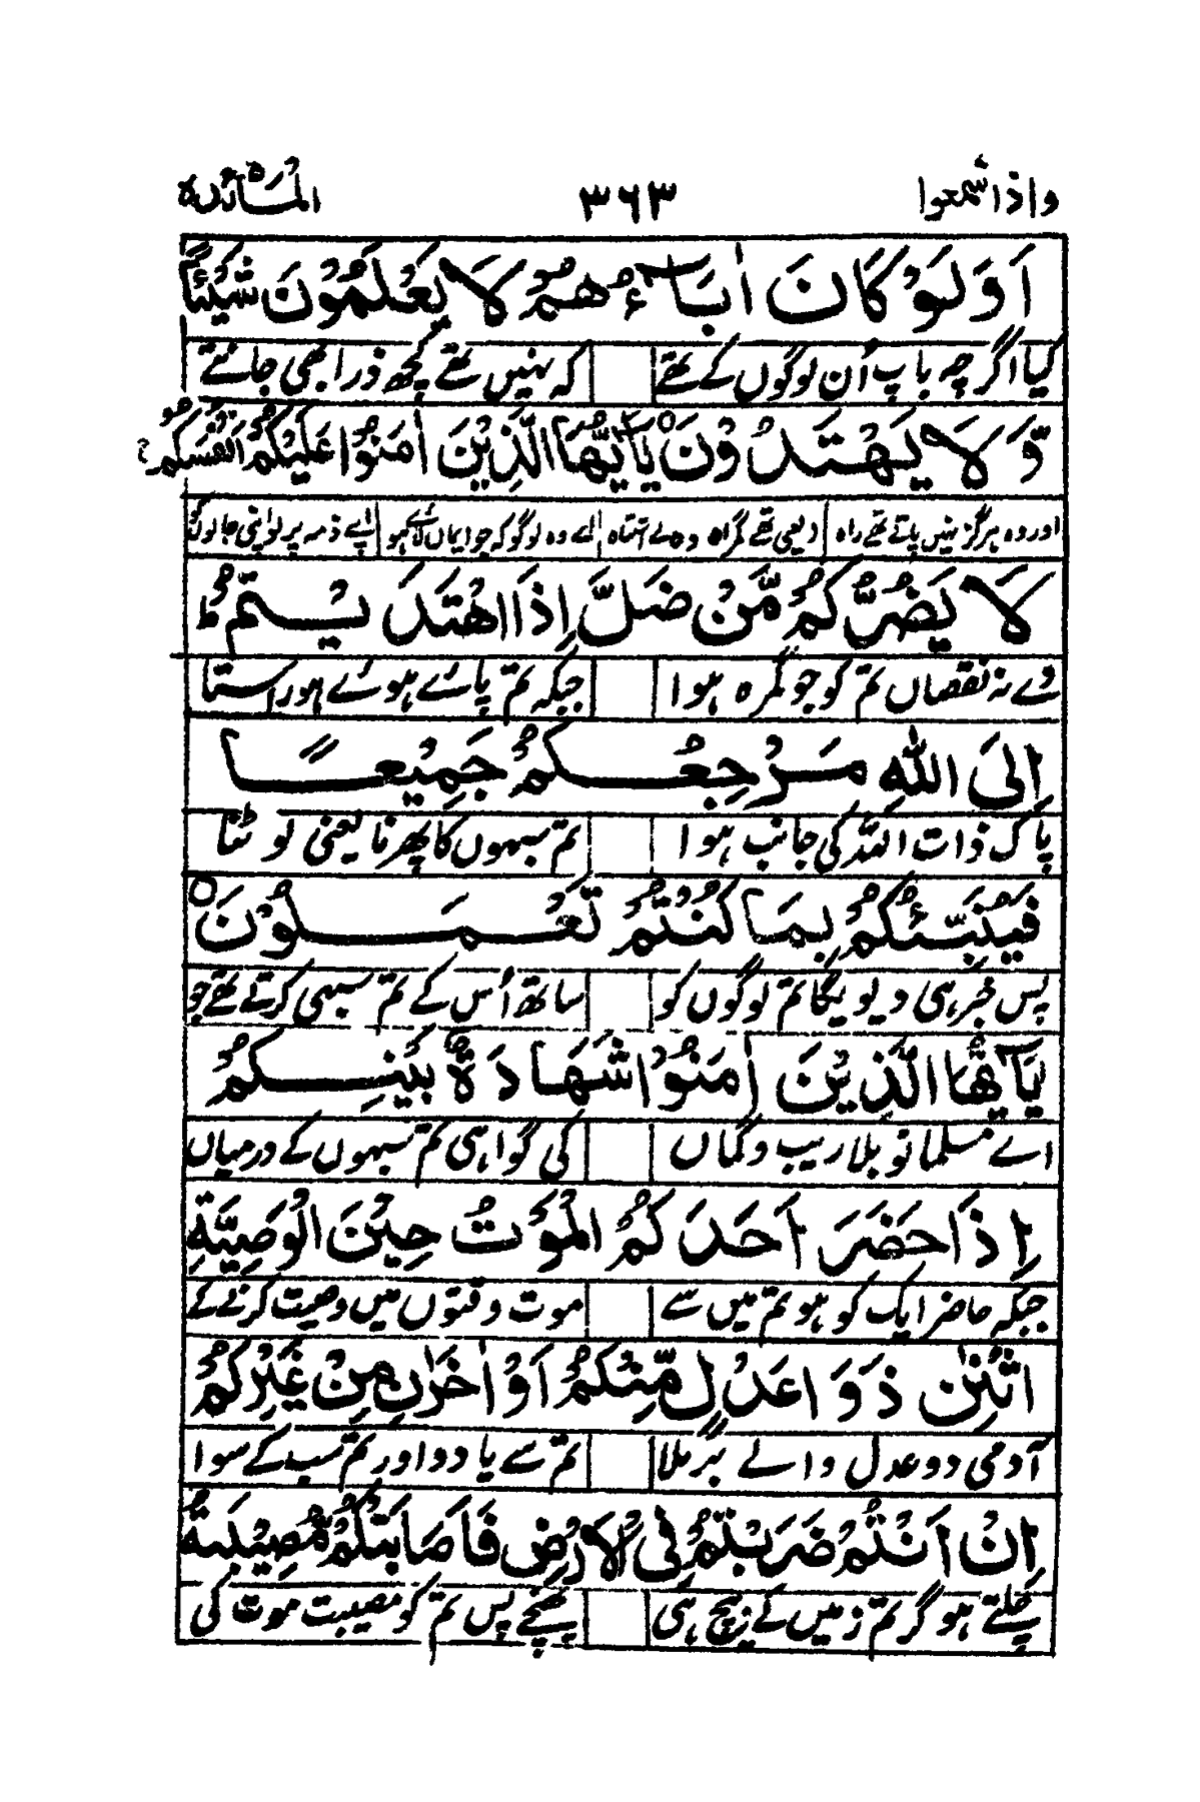 واذاسمعوا ۳۶۳ المائدة
اَوَلَوْ كَانَ اٰبَآءُهُمْ لَا يَعْلَمُوْنَ شَيْئًا
کیا اگرچہ باپ اُن لوگوں کے تھے کہ نہیں تھے کچھ ذرا بھی جانتے
وَّ لَا يَهْتَدُوْنَ يٰٓاَيُّهَا الَّذِيْنَ اٰمَنُوْا عَلَيْكُمْ اَنْفُسَكُمْ
اور وہ ہرگز نہیں پاتے تھے راہ یعنی تھے گمراہ وہ بے اشتباہ اے وہ لوگو کہ جو ایماں لائے ہو اپنے ذمہ پر لو اپنی جانوں کو
لَا يَضُرُّكُمْ مَّنْ ضَلَّ اِذَا اهْتَدَيْتُمْ ط
دے نہ نقصاں تم کو جو گمرہ ہوا جبکہ تم پائے ہوئے ہو راستا
اِلَى اللّٰهِ مَرْجِعُكُمْ جَمِيْعًا
پاک ذات اللہ کی جانب ہوا تم سبھوں کا پھرنا یعنی لوٹنا
فَيُنَبِّئُكُمْ بِمَا كُنْتُمْ تَعْمَلُوْنَ
پس خبر ہی دیویگا تم لوگوں کو ساتھ اُس کے تم سبھی کرتے تھے جو
يٰٓاَيُّهَا الَّذِيْنَ اٰمَنُوْا شَهَادَةُ بَيْنِكُمْ
اے مسلمانو بلا ریب و گماں کی گواہی تم سبھوں کے درمیاں
اِذَا حَضَرَ اَحَدَكُمُ الْمَوْتُ حِيْنَ الْوَصِيَّةِ
جبکہ حاضر ایک کو ہو تم میں سے موت وقتوں میں وصیت کرنے کے
اثْنٰنِ ذَوَا عَدْلٍ مِّنْكُمْ اَوْ اٰخَرٰنِ مِنْ غَيْرِكُمْ
آدمی دو عدل والے برملا تم سے یا دو اور تم سب کے سوا
اِنْ اَنْتُمْ ضَرَبْتُمْ فِي الْاَرْضِ فَاَصَابَتْكُمْ مُّصِيْبَةُ
چلتے ہو گر تم زمیں کے بیچ ہی پہنچے پس تم کو مصیبت موت کی